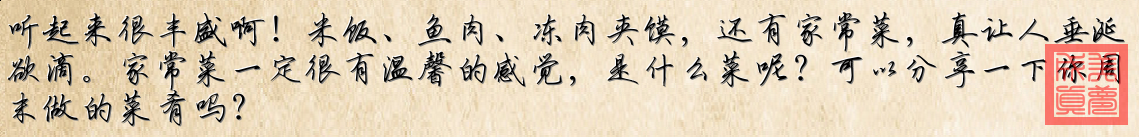 听起来很丰盛啊！米饭、鱼肉、冻肉夹馍，还有家常菜，真让人垂涎
欲滴。家常菜一定很有温馨的感觉，是什么菜呢？可以分享一下你周
末做的菜肴吗？